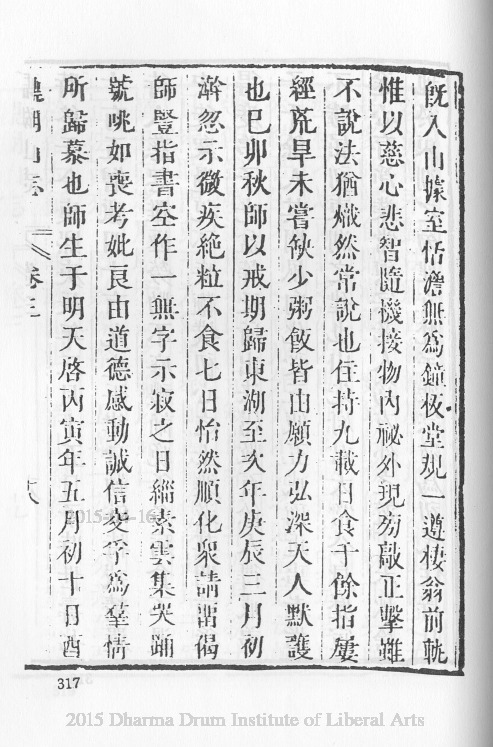 旣入山據室恬澹無爲鐘板堂規一遵棲翁前軌
惟以慈心悲智隨機接物內祕外現旁敲正擊雖
不說法猶熾然常說也住持九載日食千餘指屢
經荒旱未嘗缺少粥飯皆由願力弘深天人默護
也巳卯秋師以戒期歸東湖至次年庚辰三月初
澣忽示微疾絶粒不食七日怡然順化衆請留偈
師豎指書空作一無字示寂之日緇素雲集哭踊
號咷如喪考妣良由道德感動誠信交孚爲羣情
所歸慕也師生于明天啓丙寅年五月初十日酉
湖山志 卷三 十八
317
2015-04-16
2015 Dharma Drum Institute of Liberal Arts